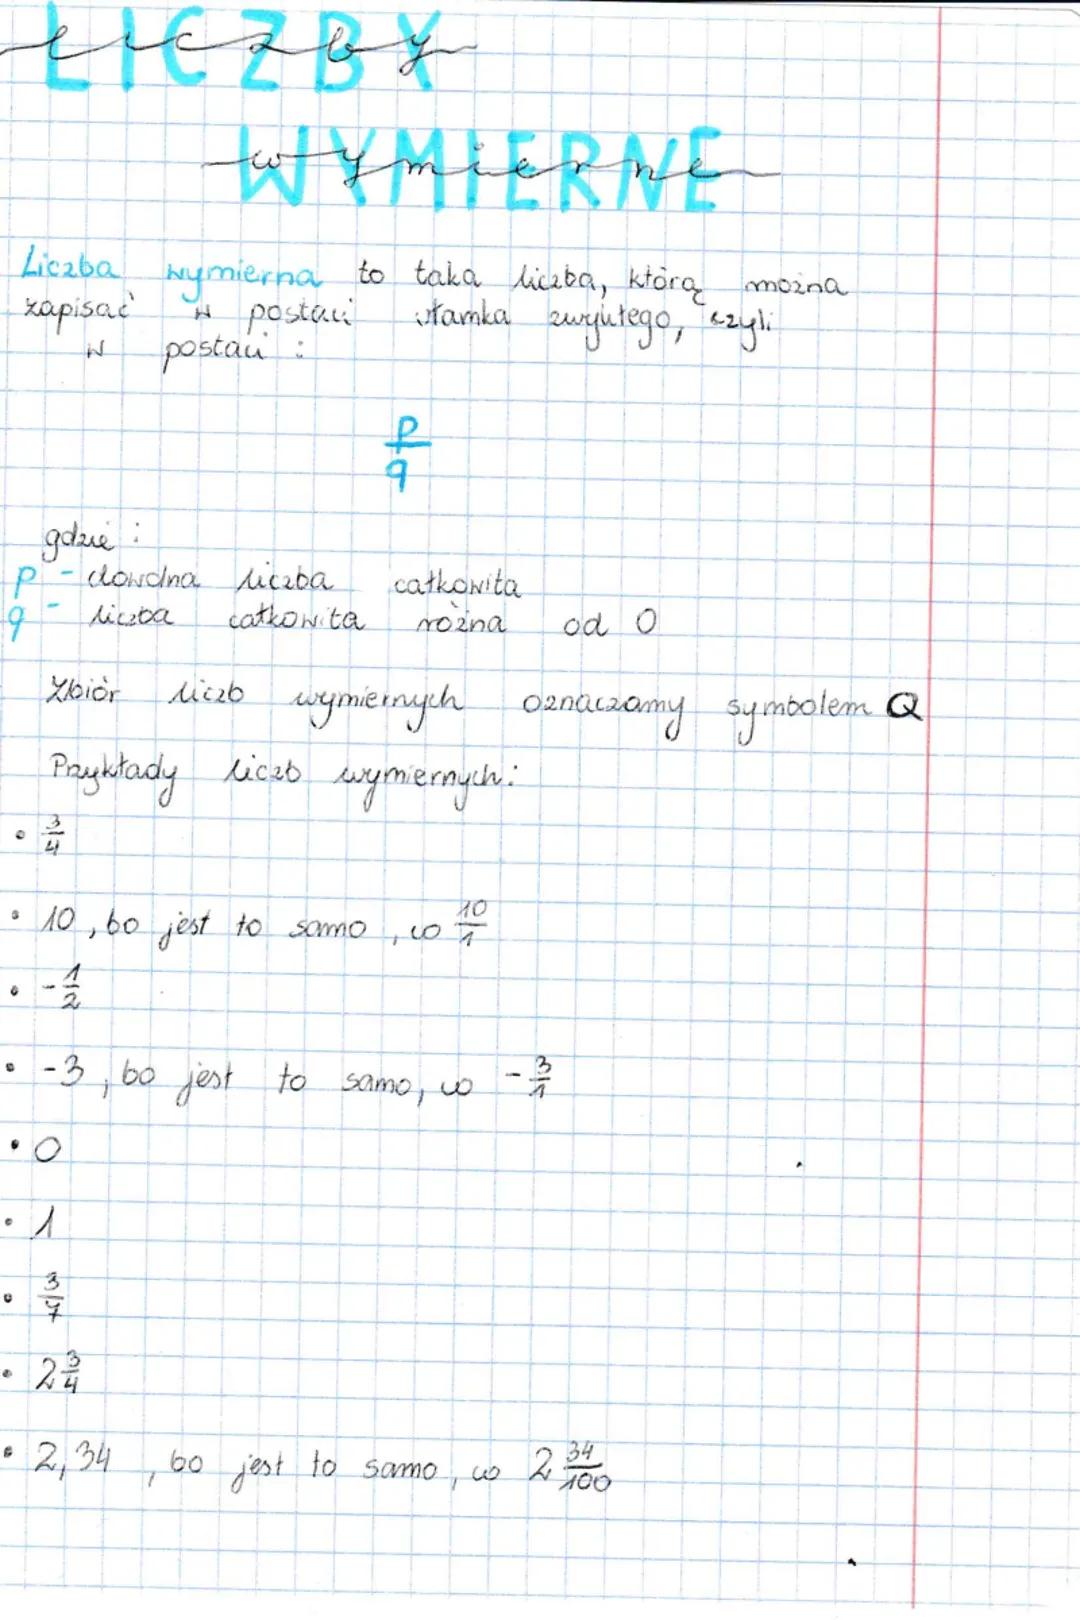 LICZBY
WYMIERNE
Liczba wymierna to taka liczba, którą można
zapisać w postaci ułamka zwykłego, czyli
w postaci :
p/q
gdzie :
p - dowolna liczba całkowita
q - liczba całkowita różna od 0
Zbiór liczb wymiernych oznaczamy symbolem Q
Przykłady liczb wymiernych:
• 3/4
• 10, bo jest to samo, co 10/1
• -1/2
• -3, bo jest to samo, co -3/1
• 0
• 1
• 3/7
• 2 3/4
• 2,34, bo jest to samo, co 2 34/100